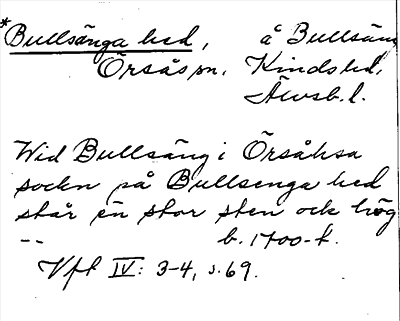 *Bullsänga hed, å Bullsäng
Örsås sn, Kinds hd,
Älvsb. l.
Wid Bullsäng i Örsåhsa
sockn på Bullsenga hed
står en stor sten och hög
-- b. 1700-t.
Vfl IV: 3-4, s. 69.